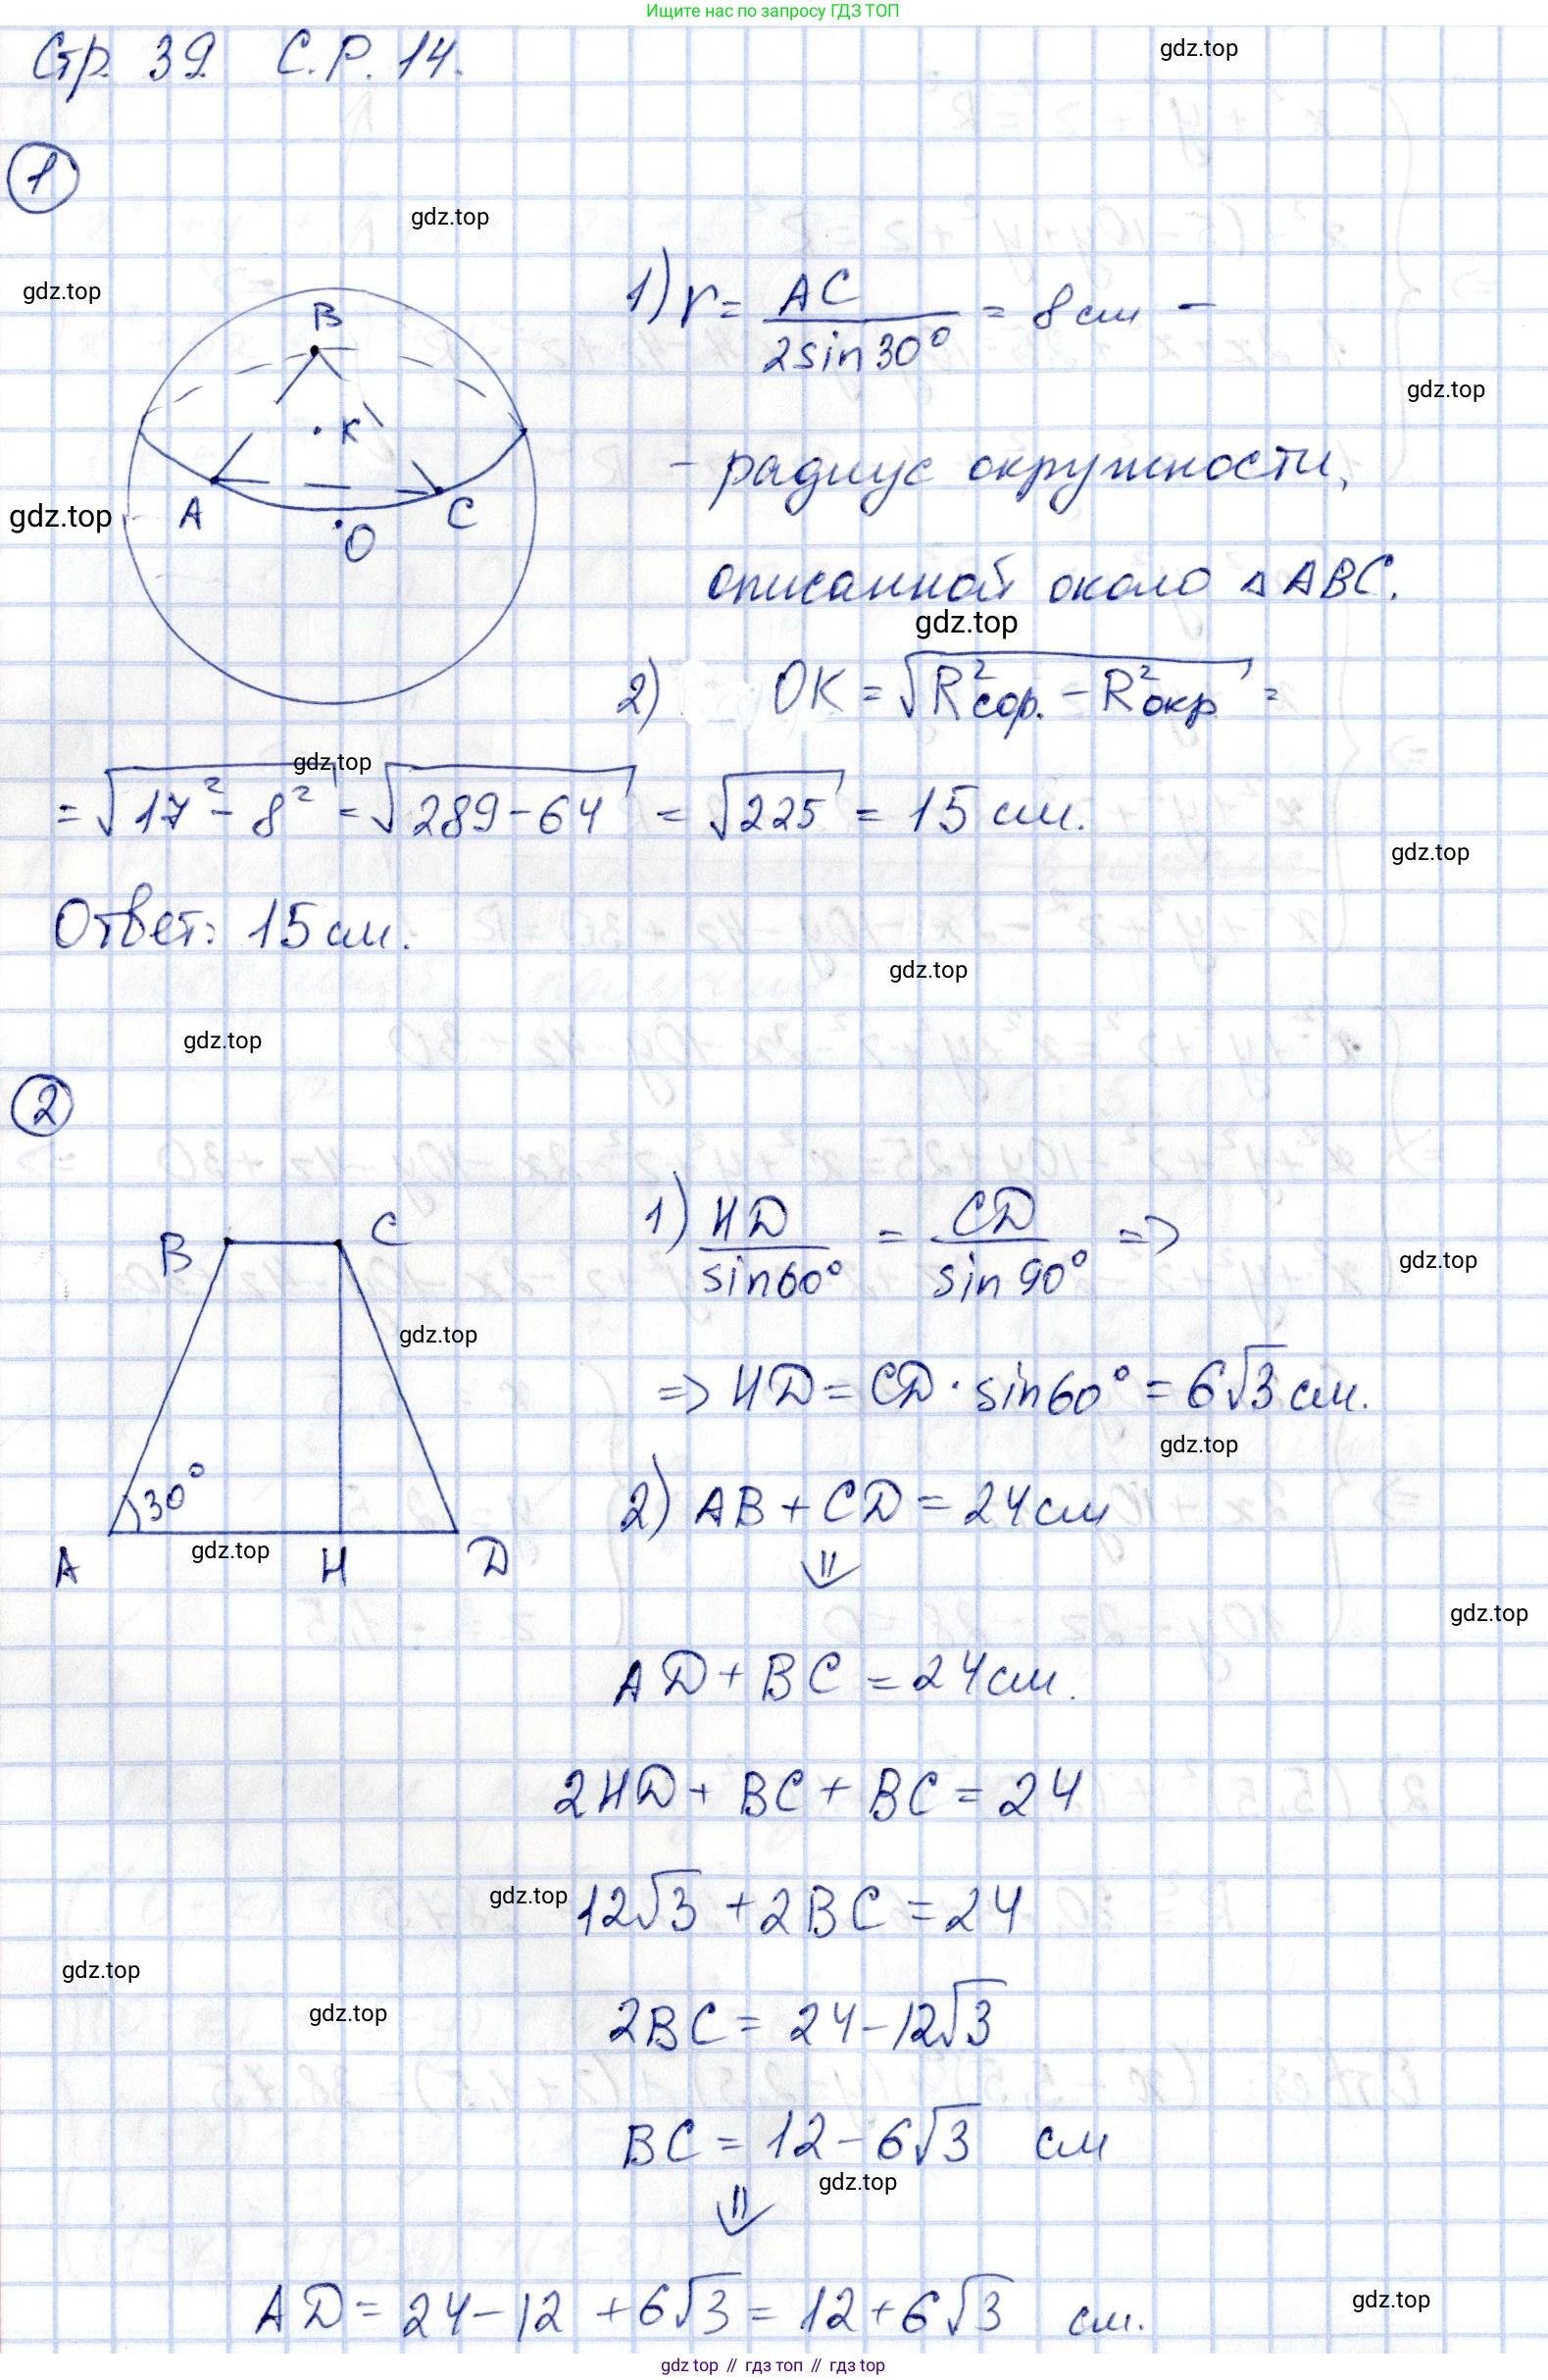 Ищите нас по запросу ГДЗ ТОП
Стр. 39 С.Р. 14.
gdz.top
1
gdz.top
gdz.top
1) r = AC / 2sin30° = 8 см –
B
K
A
C
O
gdz.top
gdz.top
– радиус окружности,
описанной около ΔABC.
gdz.top
2) OK = √(R²сф. – R²окр) =
gdz.top
= √(17² – 8²) = √(289 – 64) = √225 = 15 см.
gdz.top
Ответ: 15 см.
gdz.top
gdz.top
2
B
C
30°
A
H
D
gdz.top
gdz.top
1) HD / sin60° = CD / sin90° =>
gdz.top
=> HD = CD · sin60° = 6√3 см.
gdz.top
2) AB + CD = 24 см
⇓
gdz.top
AD + BC = 24 см.
2HD + BC + BC = 24
gdz.top
12√3 + 2BC = 24
gdz.top
gdz.top
2BC = 24 – 12√3
BC = 12 – 6√3 см
gdz.top
⇓
AD = 24 – 12 + 6√3 = 12 + 6√3 см.
gdz.top
gdz top // гдз топ // gdz top